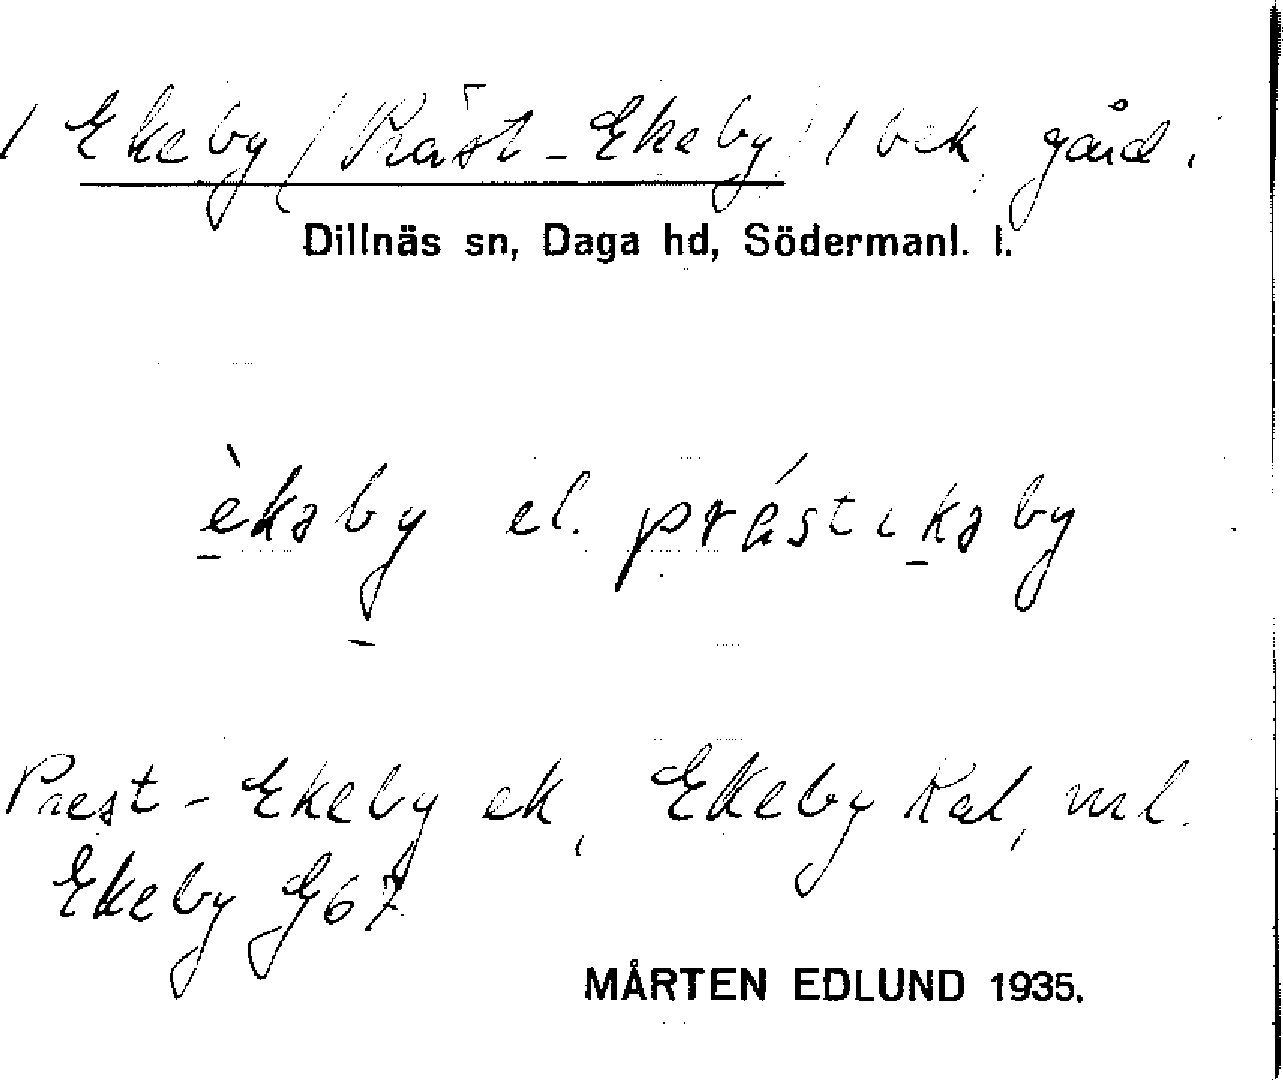 1 Ekeby (Präst-Ekeby) 1 bek. gård.
Dillnäs sn, Daga hd, Södermanl. l.
èkəby el. prástikəby
Prest-Ekeby ek, Ekeby Kal, ml.
Ekeby G67.
MÅRTEN EDLUND 1935.